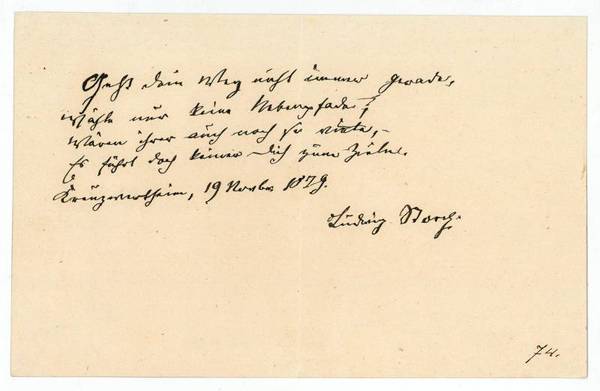 Geht dein Weg nicht immer gerade,
Wähle nur keine Nebenpfade;
Wären ihrer auch noch so viele, –
Es führt doch keiner dich zum Ziele.
Kreuzwertheim, 19 Novbr. 1879.
Ludwig Storch.
74.